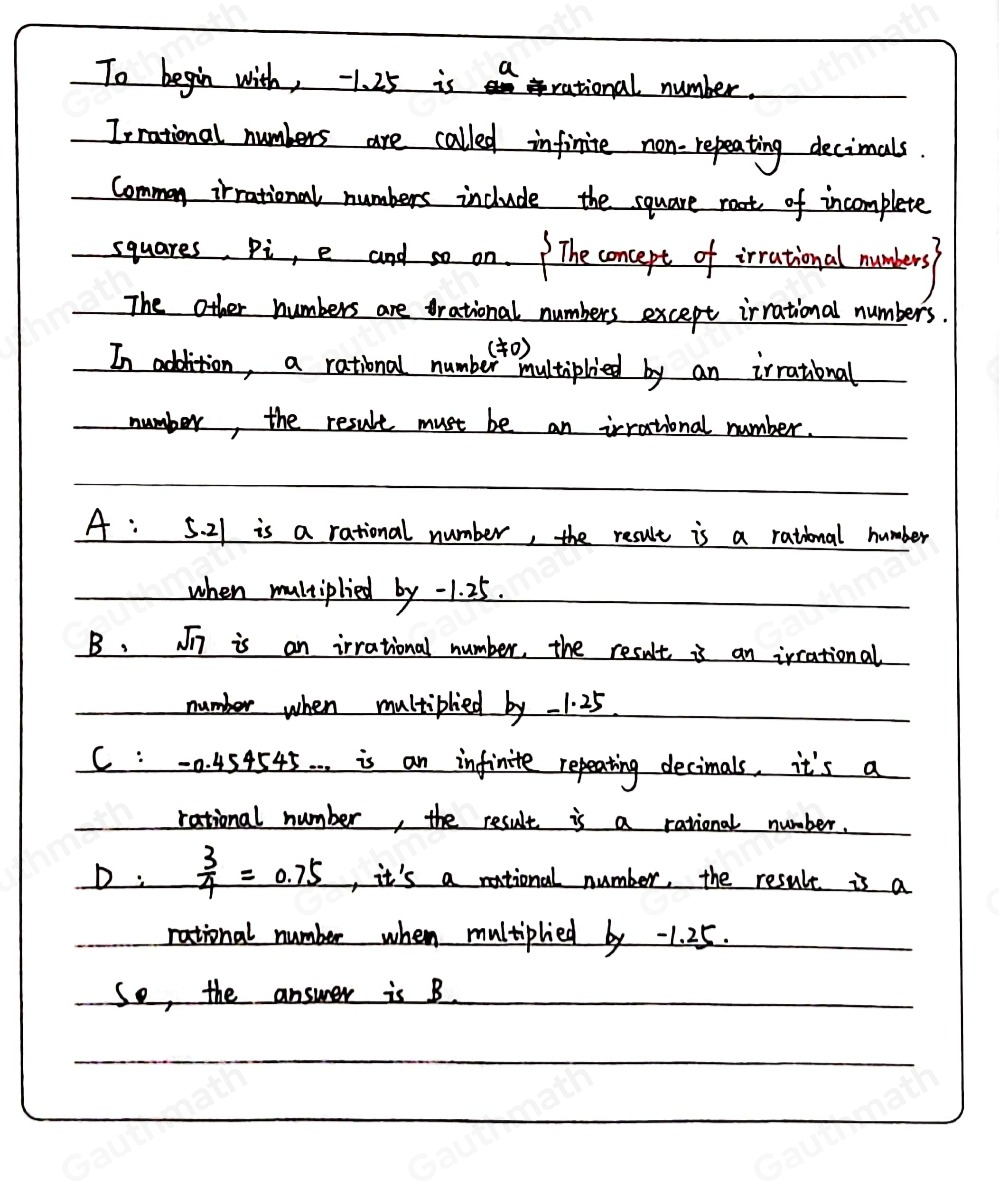 To begin with, -1.25 is a rational number.
Irrational numbers are called infinite non-repeating decimals.
Common irrational numbers include the square root of incomplete
squares, Pi, e and so on. {The concept of irrational numbers}
The other numbers are rational numbers except irrational numbers.
In addition, a rational number (≠0) multiplied by an irrational
number, the result must be an irrational number.
A: 5.21 is a rational number, the result is a rational number
when multiplied by -1.25.
B. √17 is an irrational number. the result is an irrational
number when multiplied by -1.25.
C: -0.454545... is an infinite repeating decimals. it's a
rational number, the result is a rational number.
D: 3/4 = 0.75, it's a rational number. the result is a
rational number when multiplied by -1.25.
So, the answer is B.
Gauthmath